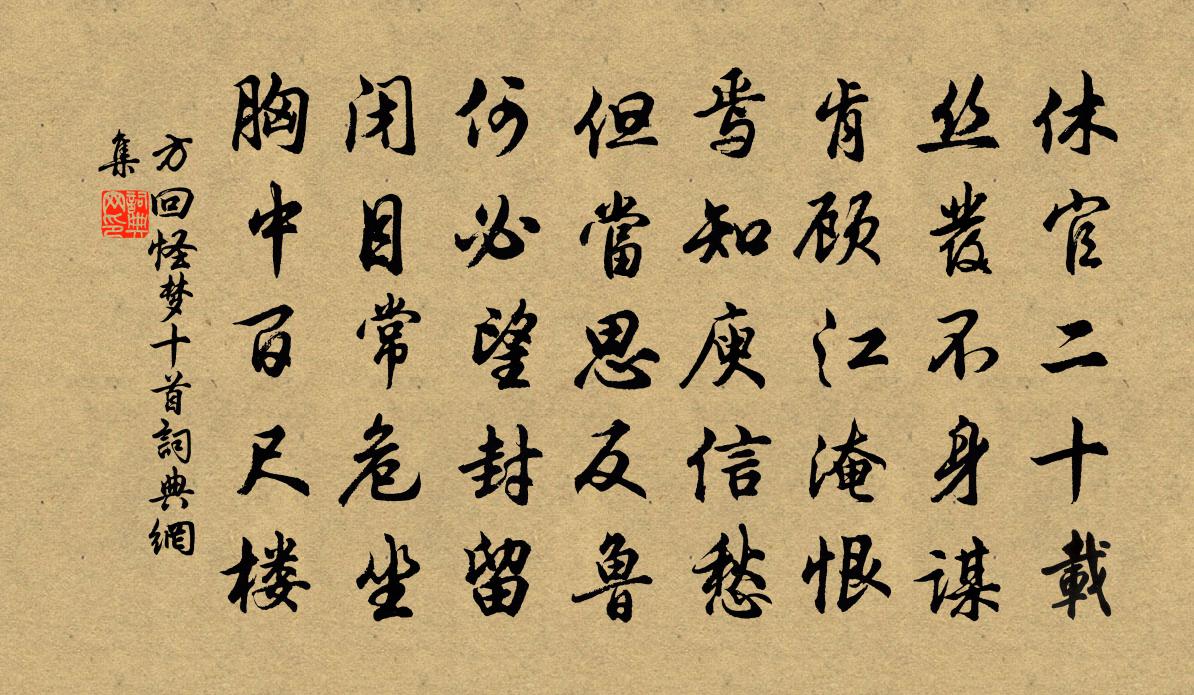 休官二十載
丝發不身謀
肯顾江淹恨
焉知庾信愁
但當思反魯
何必望封留
闭目常危坐
胸中百尺楼
方回怪梦十首詞典網
集
詞典
网印